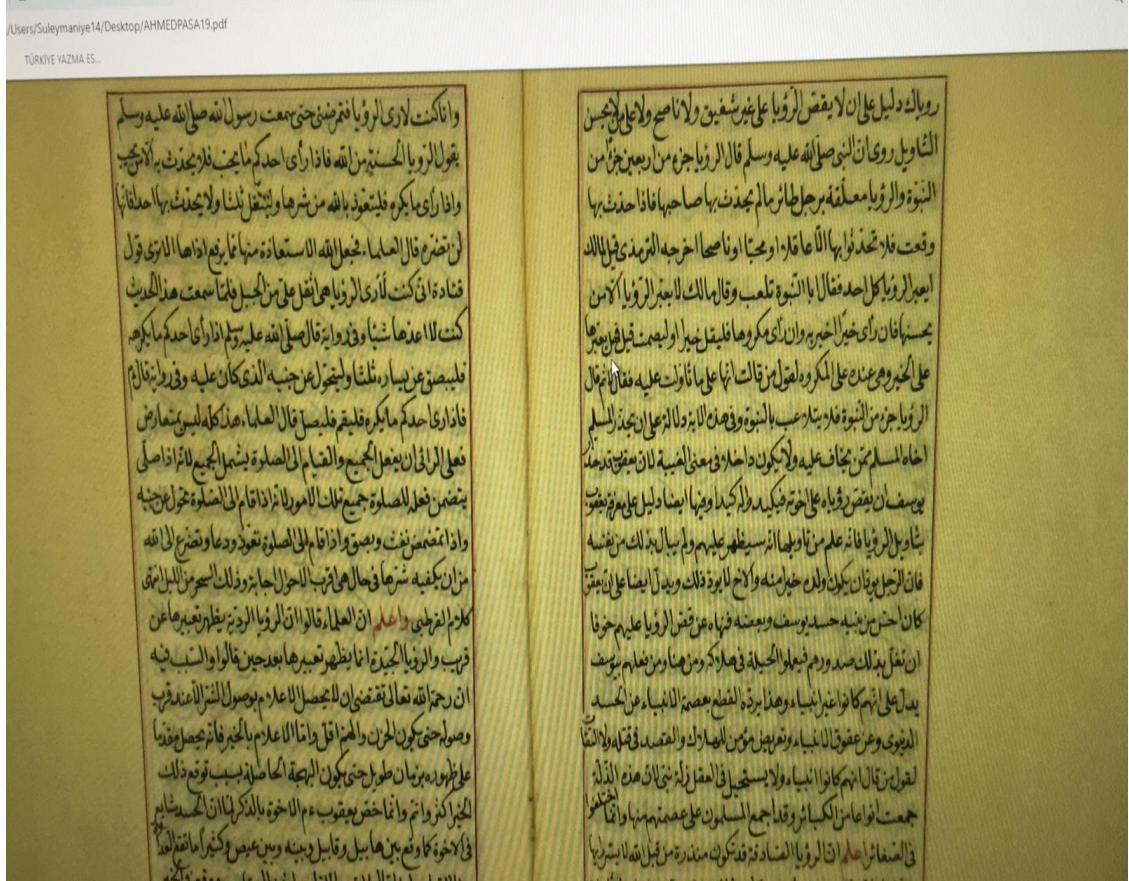 /Users/Suleymaniye14/Desktop/AHMEDPASA19.pdf
TÜRKİYE YAZMA ES...
روياك دليل على ان لا يقص الرؤيا على غير شفيق ولا ناصح ولا على من لا يحسن
التاويل روى ان النبى صلى الله عليه وسلم قال الرؤيا جزء من اربعين جزأ من
النبوة والرؤيا معلقة برجل طائر مالم يحدث بها صاحبها فاذا حدث بها
وقعت فلا تحدثوا بها الا عاقلا او محبا او ناصحا اخرجه الترمذى قيل لمالك
ايعبر الرؤيا كل احد فقال ابا النبوة تلعب وقال مالك لا يعبر الرؤيا الا من
يحسنها فان رأى خيرا اخبر به وان رأى مكروها فليقل خيرا او ليصمت قيل فهل يعبرها
على الخير وهى عنده على المكروه لقول من قالت انها على ما تأولت عليه فقال لا ثم قال
الرؤيا جزء من النبوة فلا يتلاعب بالنبوة وفى هذه الاية دلالة على ان يحذر المسلم
اخاه المسلم ممن يخاف عليه ولا يكون داخلا فى معنى الغيبة لان يعقوب قد حذر
يوسف ان يقص رؤياه على اخوته فيكيدوا له كيدا وفيها ايضا دليل على معرفة يعقوب
بتأويل الرؤيا فانه علم من تاويلها انه سيظهر عليهم ولم يبال بذلك من نفسه
فان الرجل يود ان يكون ولده خيرا منه والاخ لا يود ذلك ويدل ايضا على ان يعقوب
كان احس من بنيه حسد يوسف وبعضه فنهاه عن قص الرؤيا عليهم خوفا
ان تغل بذلك صدورهم فيعملوا الحيلة فى هلاكه ومن هنا ومن فعلهم بيوسف
يدل على انهم كانوا غير انبياء وهذا يرده القطع بعصمة الانبياء عن الحسد
الدنيوى وعن عقوق الانبياء وتعريض مؤمن للهلاك والقصد فى قتله ولا التفات
لقول من قال انهم كانوا انبياء ولا يستحيل فى العقل زلة نبى لان هذه الزلة
جمعت انواعا من الكبائر وقد اجمع المسلمون على عصمتهم منها وانما اختلفوا
فى الصغائر اعلم ان الرؤيا الصادقة قد تكون منذرة من قبل الله لا يسر رائيها
وانا كنت لارى الرؤيا فتمرضنى حتى سمعت رسول الله صلى الله عليه وسلم
يقول الرؤيا الحسنة من الله فاذا رأى احدكم ما يحب فلا يحدث به الا من يحب
واذا رأى ما يكره فليتعوذ بالله من شرها وليتفل ثلثا ولا يحدث بها احدا فانها
لن تضره قال العلماء فجعل الله الاستعاذة منها مما يرفع اذاها الا ترى قول
قتادة انى كنت لأرى الرؤيا هى اثقل على من الجبل فلما سمعت هذا الحديث
كنت لا اعدها شيئا وفى رواية قال صلى الله عليه وسلم اذا رأى احدكم ما يكرهه
فليبصق عن يساره ثلثا وليتحول عن جنبه الذى كان عليه وفى رواية قال عم
فاذا رى احدكم ما يكره فليقم فليصل قال العلماء هذا كله ليس بمتعارض
فعلى الرائى ان يفعل الجميع والقيام الى الصلوة يشمل الجميع لانه اذا صلى
يتضمن فعله للصلوة جميع تلك الامور لانه اذا قام الى الصلوة تحول عن جنبه
واذا تمضمض نفث وبصق واذا قام الى الصلوة تعوذ ودعا وتضرع الى الله
من ان يكفيه شرها فى حال هى اقرب الاحوال اجابة وذلك السحر من الليل انتهى
كلام القرطبى واعلم ان العلماء قالوا ان الرؤيا الردية يظهر تعبيرها عن
قرب والرؤيا الجيدة انما يظهر تعبيرها بعد حين قالوا والسبب فيه
ان رحمة الله تعالى تقتضى ان لا يحصل الاعلام بوصول الشر الا عند قرب
وصوله حتى يكون الحزن والهم اقل واما الاعلام بالخير فانه يحصل مقدما
على ظهوره بزمان طويل حتى يكون البهجة الحاصلة بسبب توقع ذلك
الخير اكثر واتم وانما خص يعقوب ءم الاخوة بالذكر لما ان الحسد شايع
فى الاخوة كما وقع بين هابيل وقابيل وبينه وبين عيص وكثيرا ما